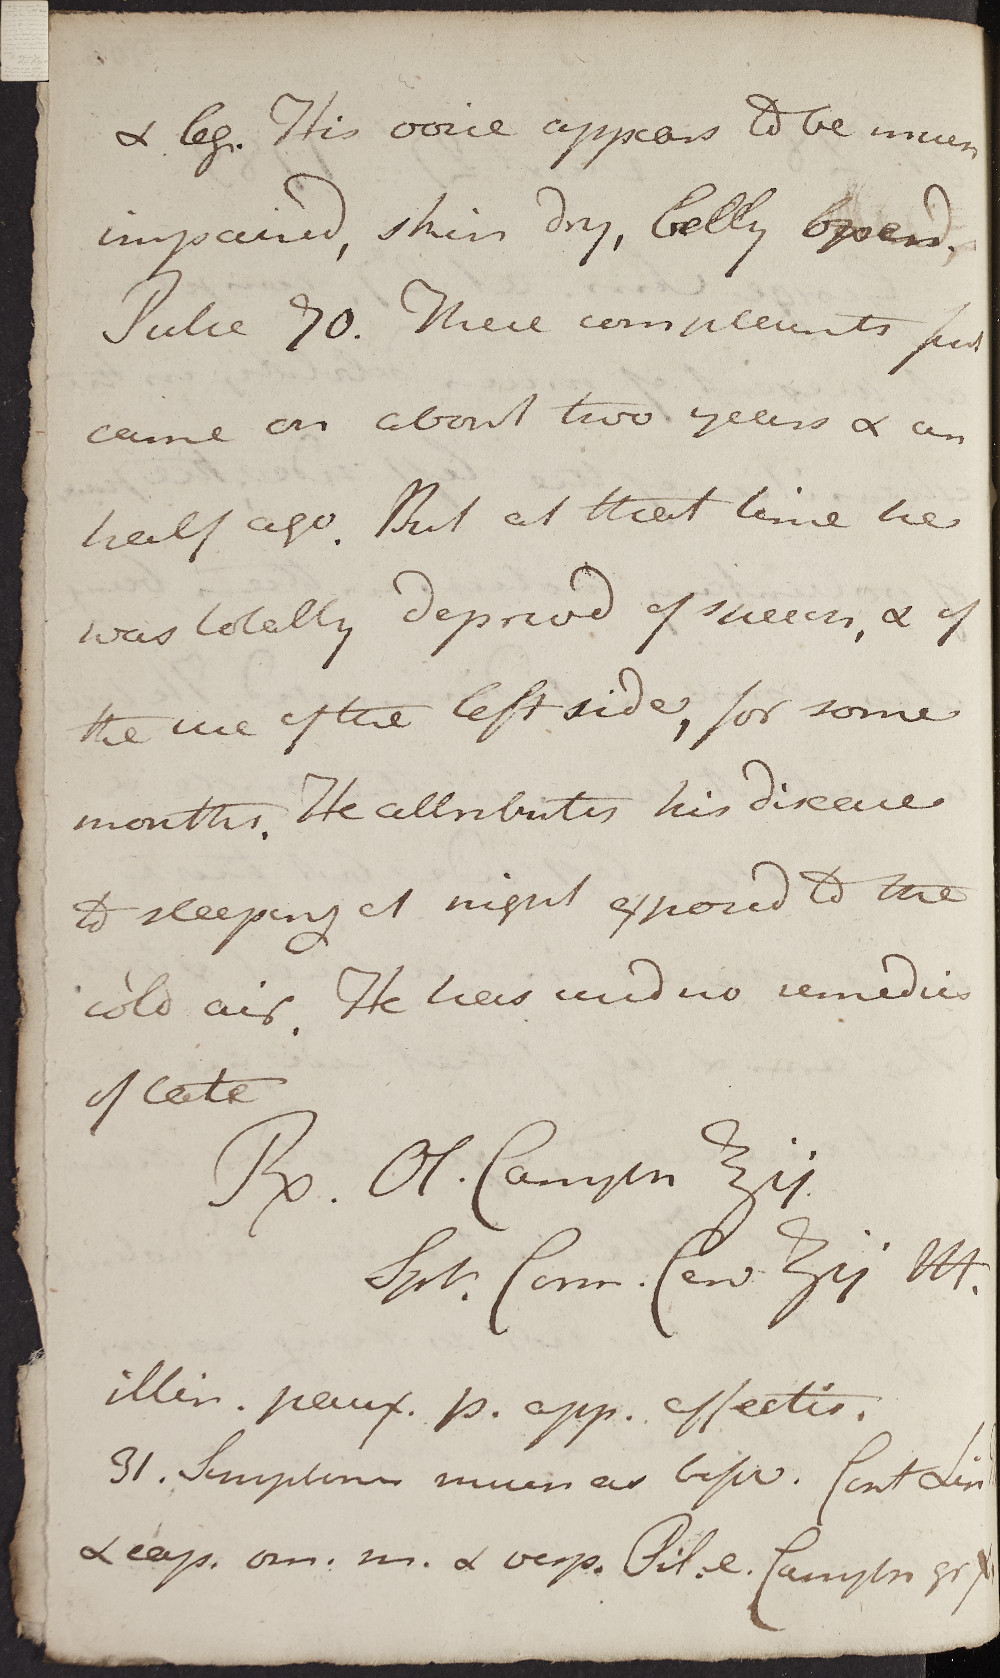 & leg. His voice appears to be much
impaired, skin dry, belly bound,
Pulse 70. These complaints first
came on about two years & an
half ago. But at that time he
was totally deprived of speech, & of
the use of the left side, for some
months. He attributes his disease
to sleeping at night exposed to the
cold air. He has used no remedies
of late
Rx. Ol. Camph ʒij.
Spt. Corn. Cerv ʒij M.
illin. paux. p. app. affectis.
31. Symptoms much as befor. Cont Lin
& cap. om. m. & vesp. Pil. e. Camphr gr